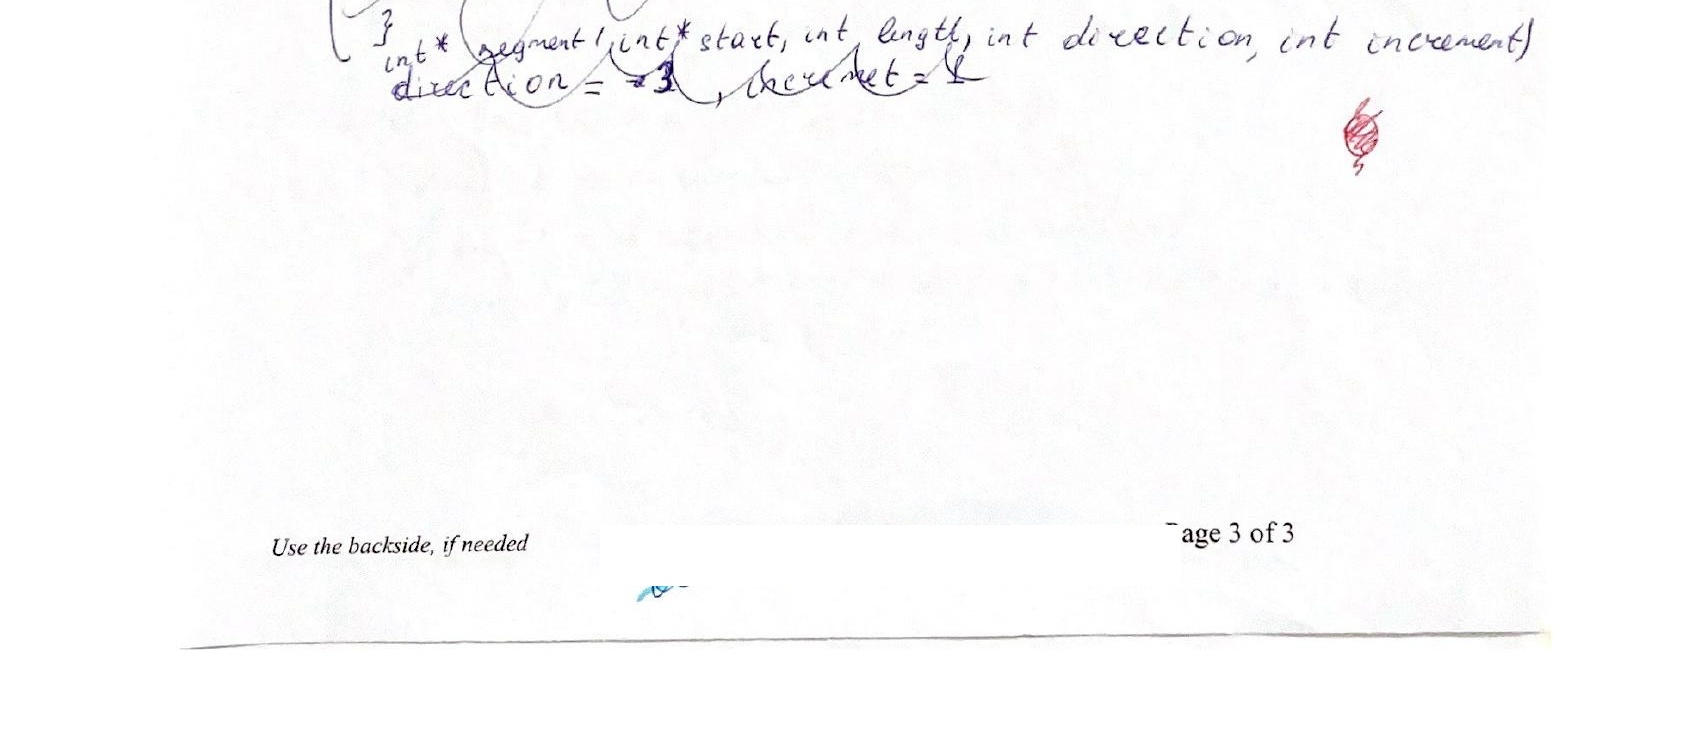 }
int* segment(int* start, int length, int direction, int increment)
direction = -3, increment = 1
Use the backside, if needed
age 3 of 3